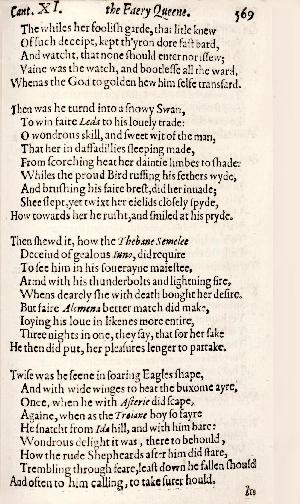 Cant. XI. the Faery Queene. 569
The whiles her foolish garde, that litle knew
Of such deceipt, kept th'yron dore fast bard,
And watcht, that none should enter nor issew;
Vaine was the watch, and bootlesse all the ward,
Whenas the God to golden hew him selfe transfard.
Then was he turnd into a snowy Swan,
To win faire Leda to his louely trade:
O wondrous skill, and sweet wit of the man,
That her in daffadillies sleeping made,
From scorching heat her daintie limbes to shade:
Whiles the proud Bird ruffing his fethers wyde,
And brushing his faire brest, did her inuade;
Shee slept, yet twixt her eielids closely spyde,
How towards her he rusht, and smiled at his pryde.
Then shewd it, how the Thebane Semelee
Deceiud of gealous Iuno, did require
To see him in his souerayne maiestee,
Armd with his thunderbolts and lightning fire,
Whens dearely she with death bought her desire.
But faire Alcmena better match did make,
Ioying his loue in likenes more entire,
Three nights in one, they say, that for her sake
He then did put, her pleasures lenger to partake.
Twise was he seene in soaring Eagles shape,
And with wide winges to beat the buxome ayre,
Once, when he with Asterie did scape,
Againe, when as the Troiane boy so fayre
He snatcht from Ida hill, and with him bare:
Wondrous delight it was, there to behould,
How the rude Shepheards after him did stare,
Trembling through feare, least down he fallen should
And often to him calling, to take surer hould.